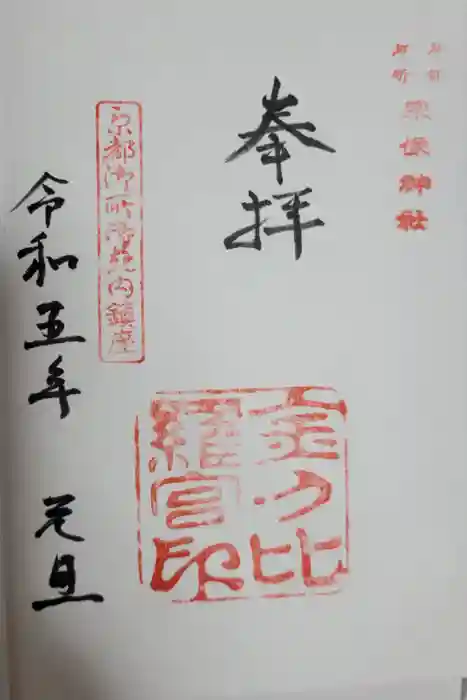 宗像神社
奉拝
京都御所御苑内鎮座
金刀比
羅宮印
令和五年 元旦